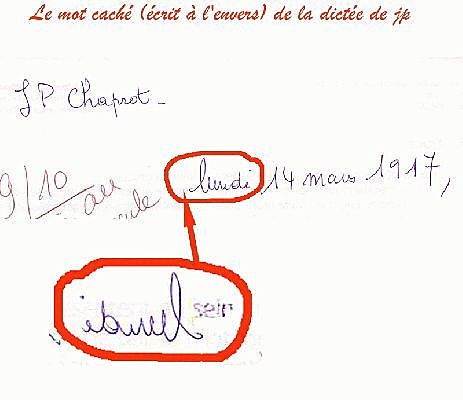 Le mot caché (écrit à l'envers) de la dictée de jp
JP Chaprot-
9/10 au lundi 14 mars 1917,